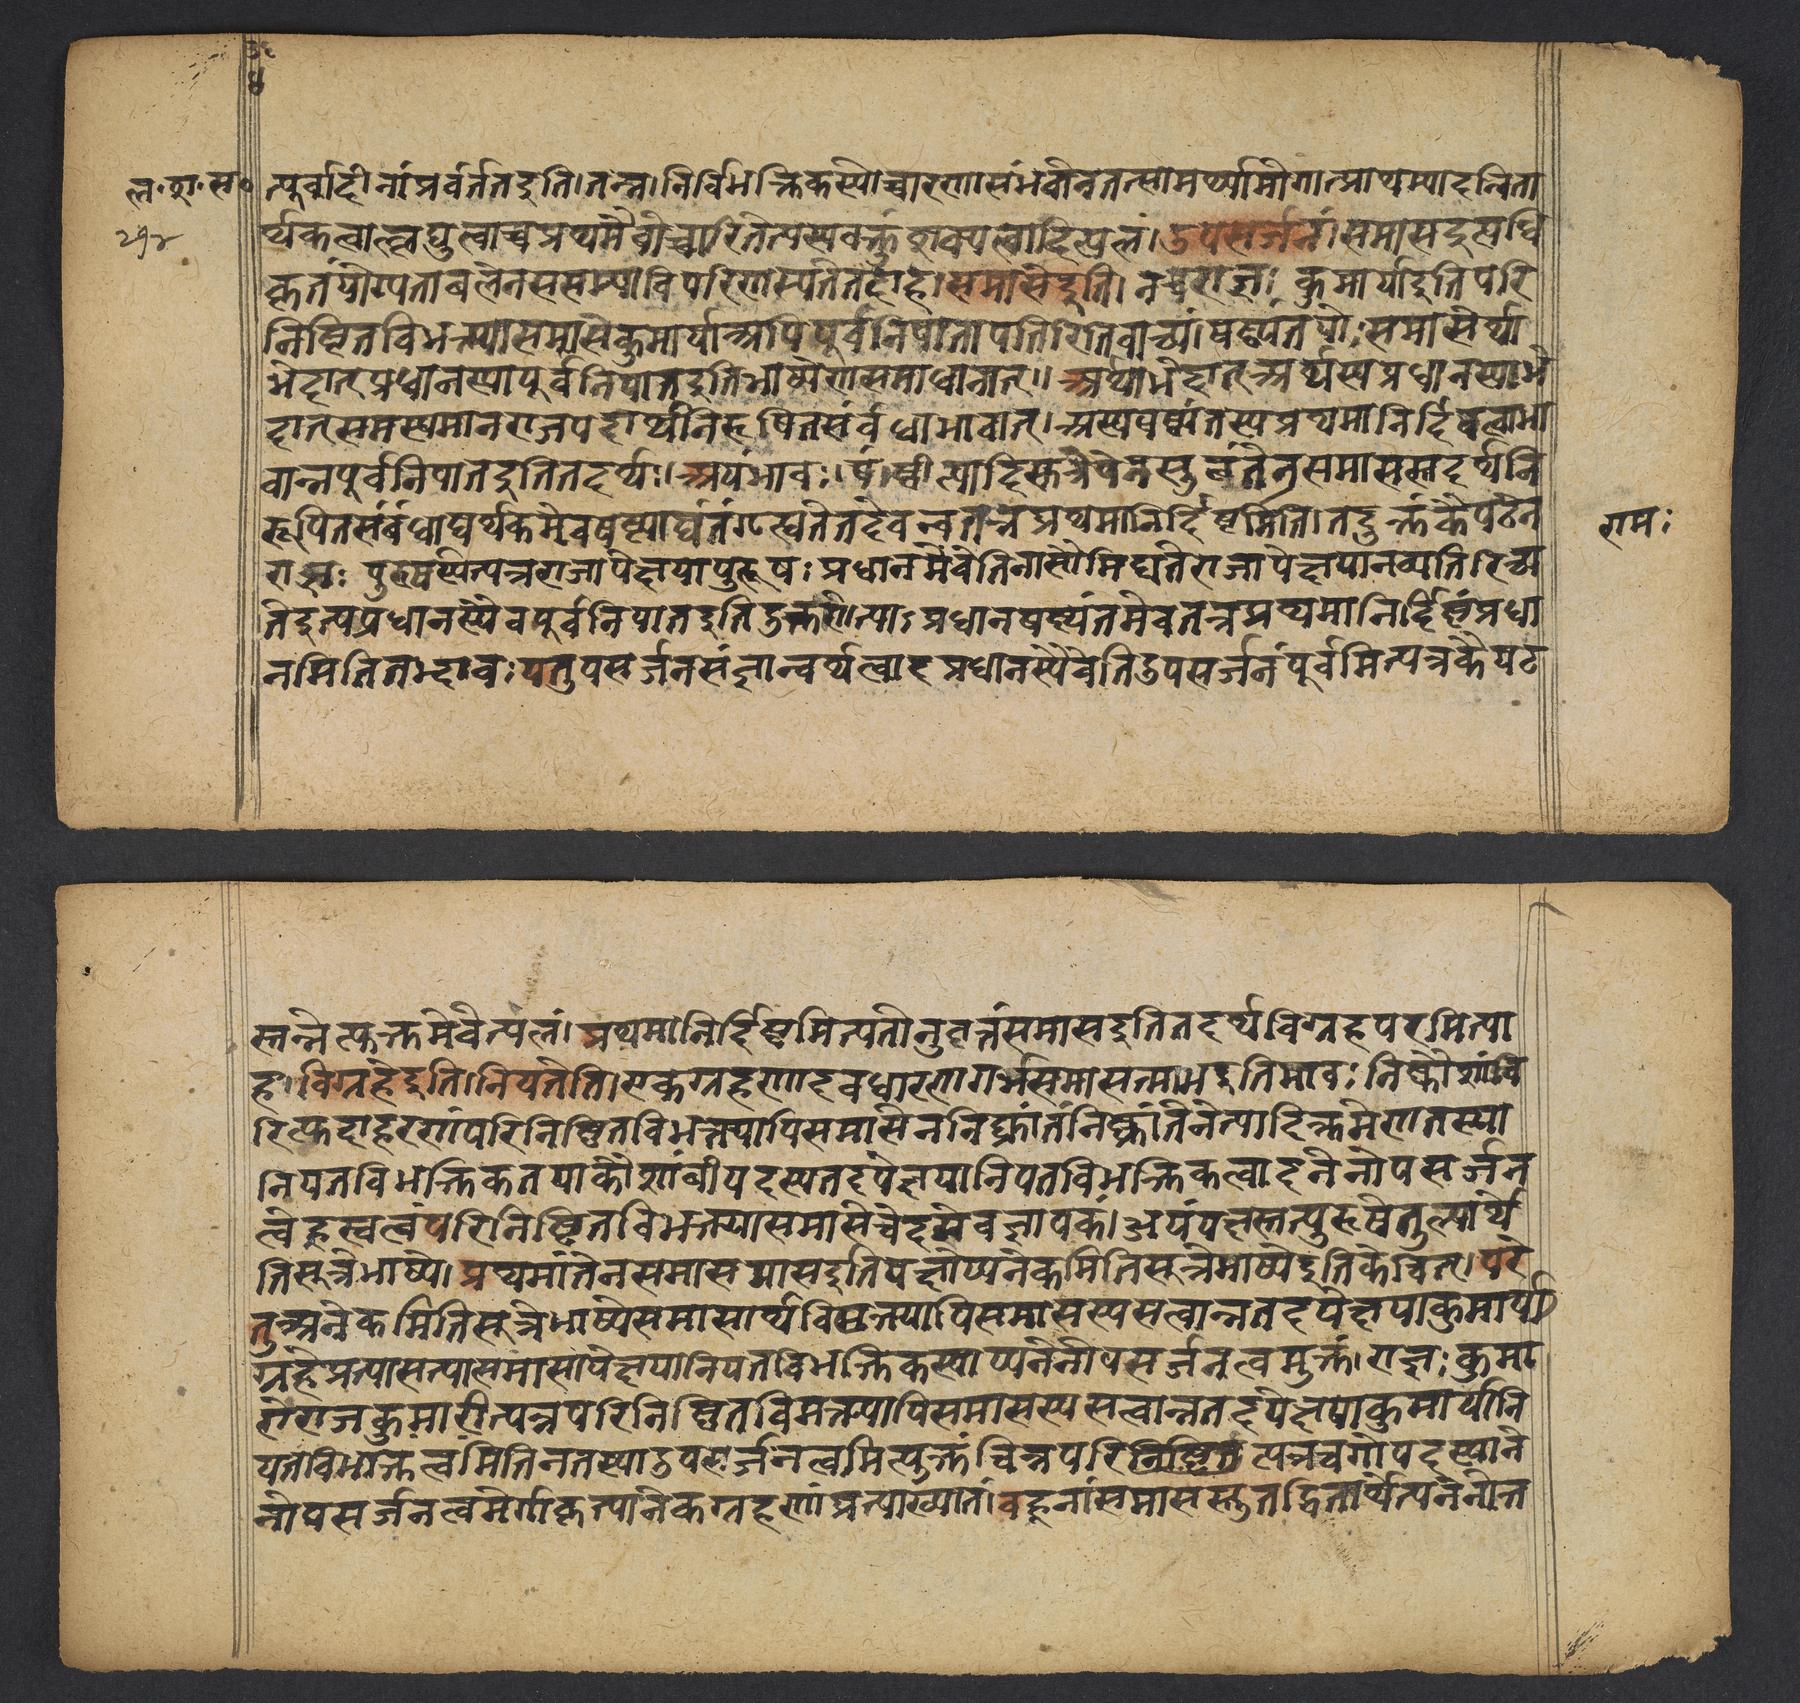 ल.शा.स०
२१४
त्पूर्वादीनां प्रवर्ततइति।तन्न।निर्विभक्तिकस्योच्चारणासंभवेनतत्सामर्थ्यायोगात्प्राथम्यादन्विता
र्थकत्वाल्लघुत्वाच्चप्रथममेवोच्चारितेत्यस्यवक्तुंशक्यत्वादित्यलं।उपसर्जनं।समासइत्यधि
कृतंयोग्यताबलेनससम्याविपरिणम्यतेतदाह।समासेइति।नचराज्ञः कुमार्याइतिपरि
निष्ठितविभक्त्यासमासेकुमार्याअपिपूर्वनिपातापत्तिरितिवाच्यं।षष्ठ्यंतयोःसमासेर्था
भेदात्प्रधानस्यापूर्वनिपातइतिभाष्येणसमाधानात्॥अर्थाभेदात्अर्थस्यप्रधानस्याभे
दात्समस्यमानराजपदार्थनिरूपितसंबंधाभावात्।अस्यषष्ठ्यंतस्यप्रथमानिर्दिष्टत्वाभा
वान्नपूर्वनिपातइतितदर्थः।अयंभावः।षष्ठीत्यादिसूत्रेयेनसुबंतेनसमासस्तदर्थनि
रूपितसंबंधाद्यर्थकमेवषष्ठ्याद्यंतंगृह्यतेतदेवचतत्रप्रथमानिर्दिष्टमिति।तदुक्तंकैयटेन
राज्ञः पुरुषस्येत्यत्रराजापेक्षयापुरुषः प्रधानमेवेतिनासौभिद्यतेराजापेक्षयानव्यतिरिच्य
तेइत्यप्रधानस्यैवपूर्वनिपातइतिउक्तरीत्याऽप्रधानषष्ठ्यंतमेवतत्रप्रथमानिर्दिष्टंप्रधा
नमितितद्भावः यत्तुपसर्जनसंज्ञान्वर्थत्वादप्रधानस्यैवेतिउपसर्जनंपूर्वमित्यत्रकैयट
रामः
स्तन्नेत्युक्तमेवेत्यलं।प्रथमानिर्दिष्टमित्यतोनुवृत्तंसमासइतितदर्थविग्रहपरमित्या
ह।विग्रहेइति।नियतेति।एकग्रहणादवधारणगर्भसमासत्माभइतिभावः निष्कौशांबि
रित्युदाहरणंपरिनिष्ठितविभक्त्यापिसमासेननिष्क्रांतंनिष्क्रांतेनेत्यादिक्रमेणतस्या
नियतविभक्तिकतयाकौशांबीपदस्यतदपेक्षयानियतविभक्तिकत्वादनेनोपसर्जन
त्वेह्रस्वत्वंपरिनिष्ठितविभक्त्यासमासेचेदमेवज्ञापकं।अयंपक्षस्तत्पुरुषेतुल्यार्थे
तिसूत्रेभाष्ये।प्रथमांतेनसमासइतिपक्षोप्यनेकमितिसूत्रेभाष्येइतिकेचित्।परे
तुअनेकमितिसूत्रेभाष्येसमासार्थविभक्त्यापिसमासस्यसत्वान्नतदपेक्षयाकुमार्या
ग्रहेप्रत्यासत्यासमासापेक्षयानियतविभक्तिकस्याप्यनेनोपसर्जनत्वमुक्तं।राज्ञः कुमा
रीराजकुमारीत्यत्रपरिनिष्ठितविभक्त्यापिसमासस्यसत्वान्नतदपेक्षयाकुमार्यानि
यतविभक्तित्वमितिनतस्याउपसर्जनत्वमित्युक्तंचिन्नपरिनिष्ठितेत्यत्रचगोपदस्याने
नोपसर्जनत्वमंगीकृत्यानेकग्रहणंप्रत्याख्यातं।बहूनांसमासस्तुतद्धितार्थेत्यनेनोक्त